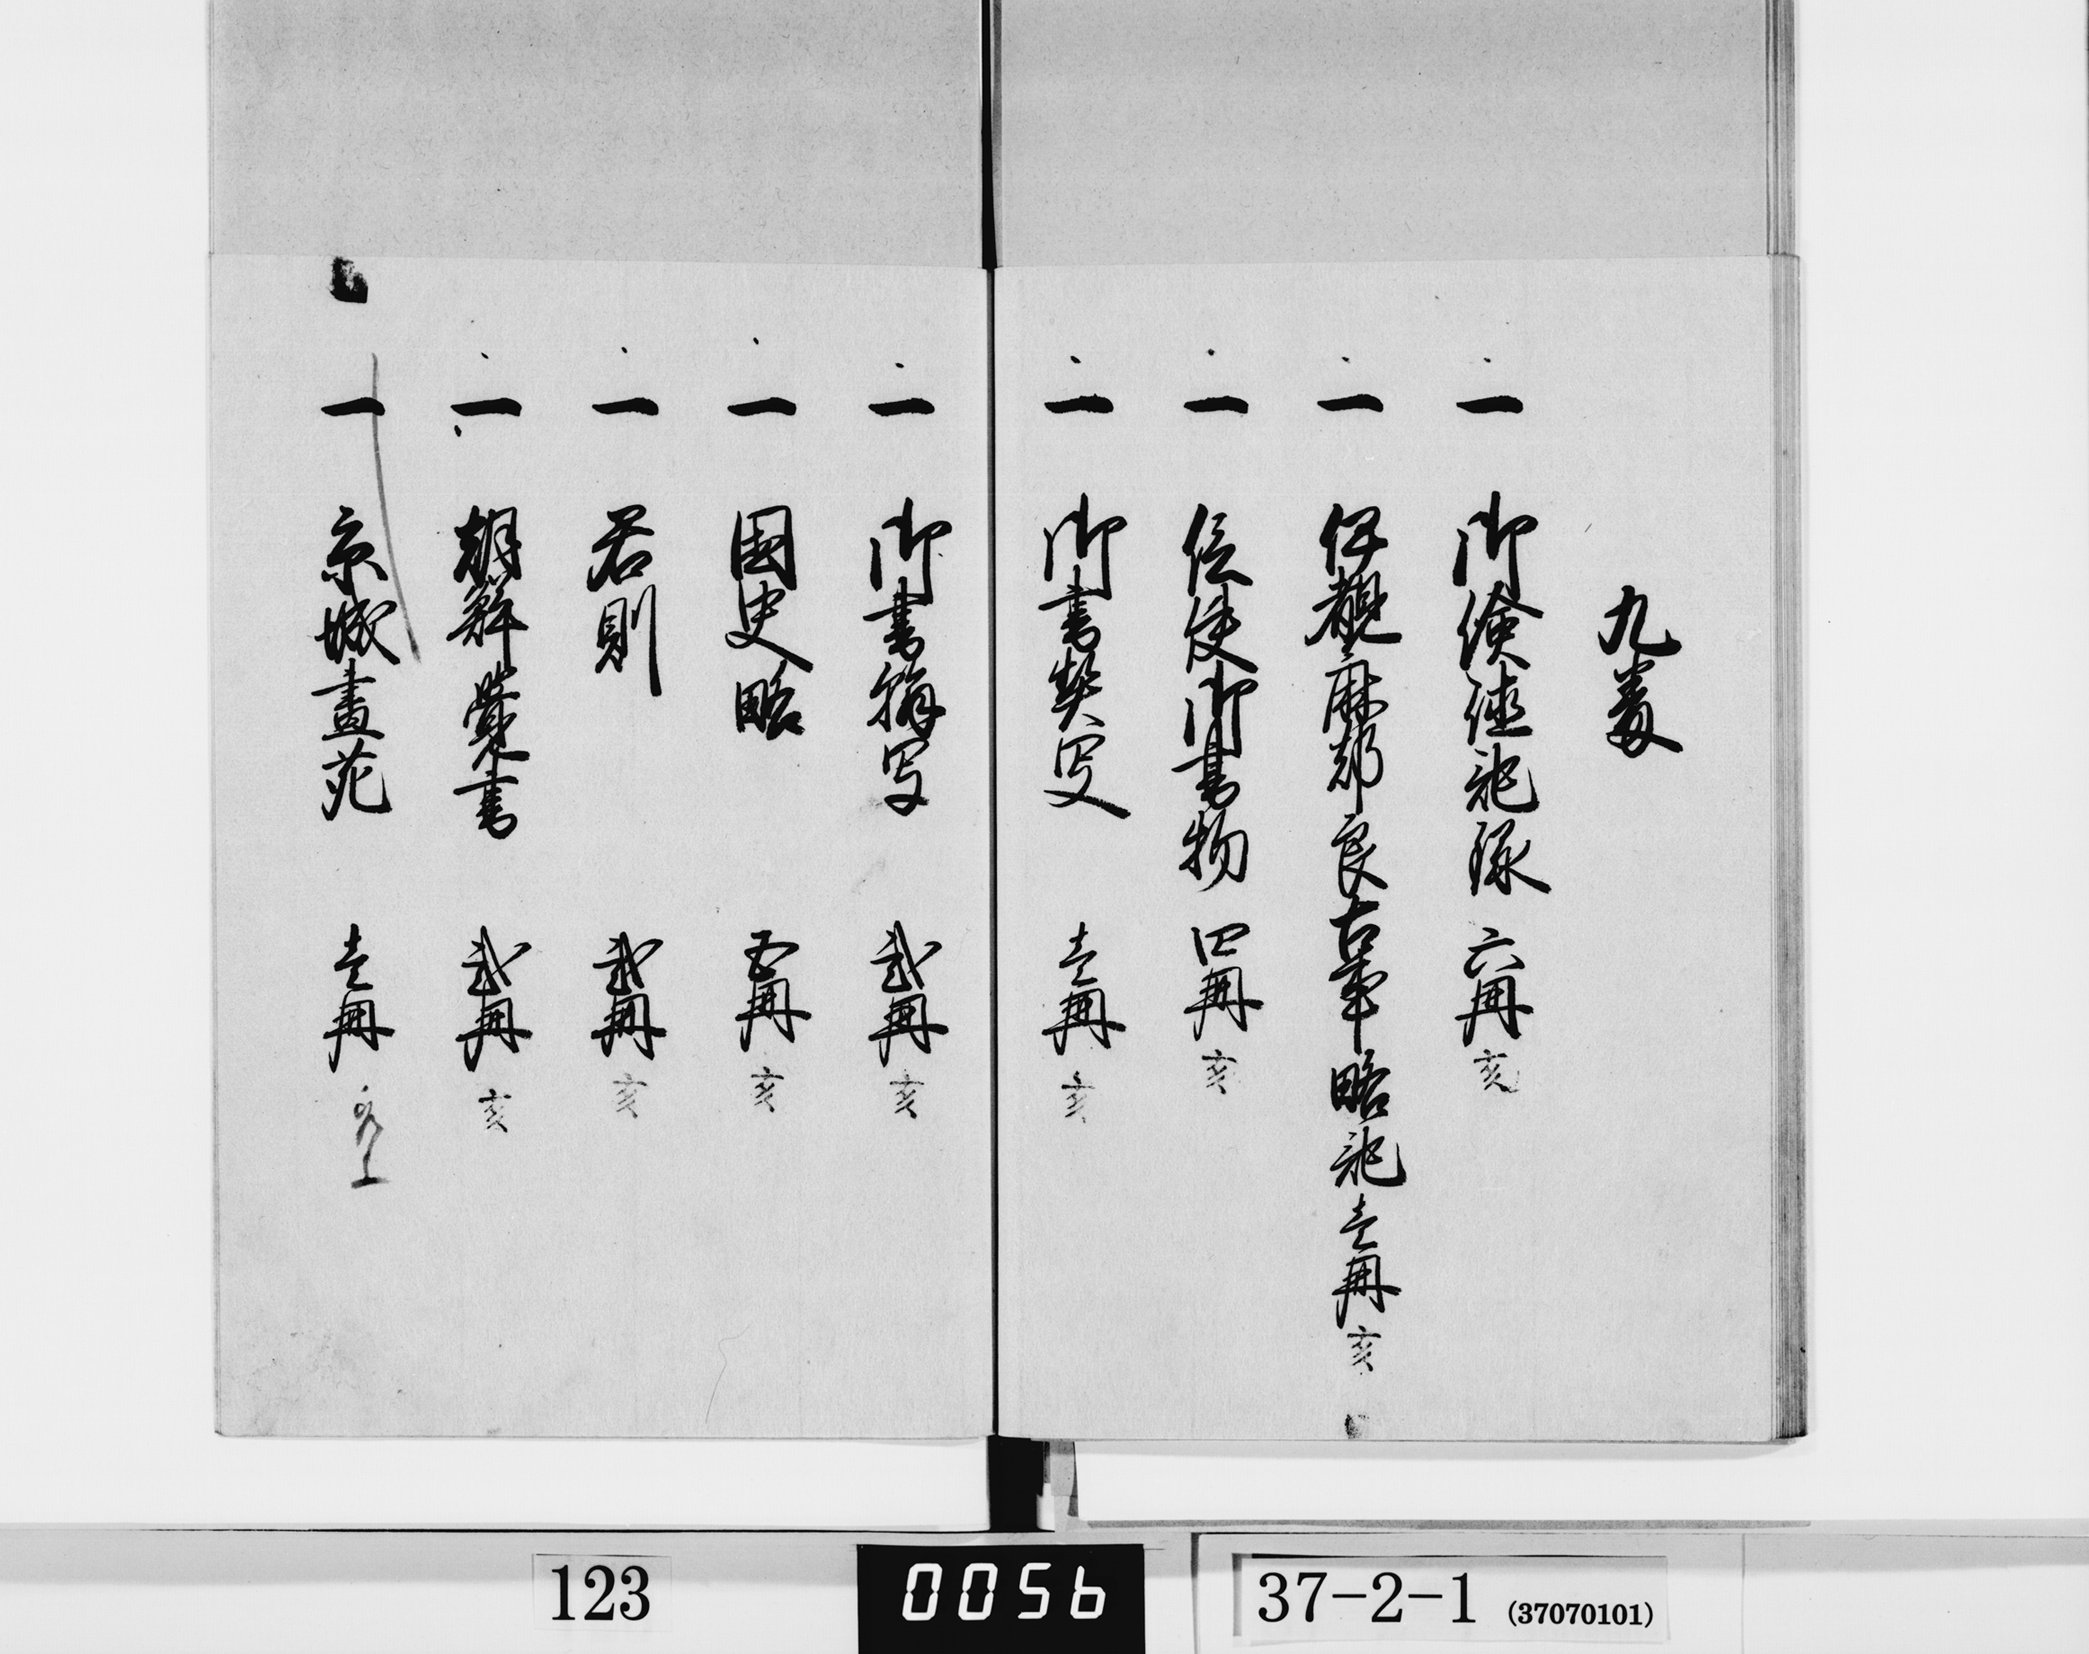 九
一 御倹徳記録 六冊 亥
一 伊覩麻都良古事略記 壱冊 亥
一 信使御書物 四冊 亥
一 御書契写 壱冊 亥
一 御書翰写 弐冊 亥
一 國史略 五冊 亥
一 君則 弐冊 亥
一 朝鮮覚書 弐冊 亥
一 京城畫苑 壱冊
123
0056
37-2-1 (37070101)